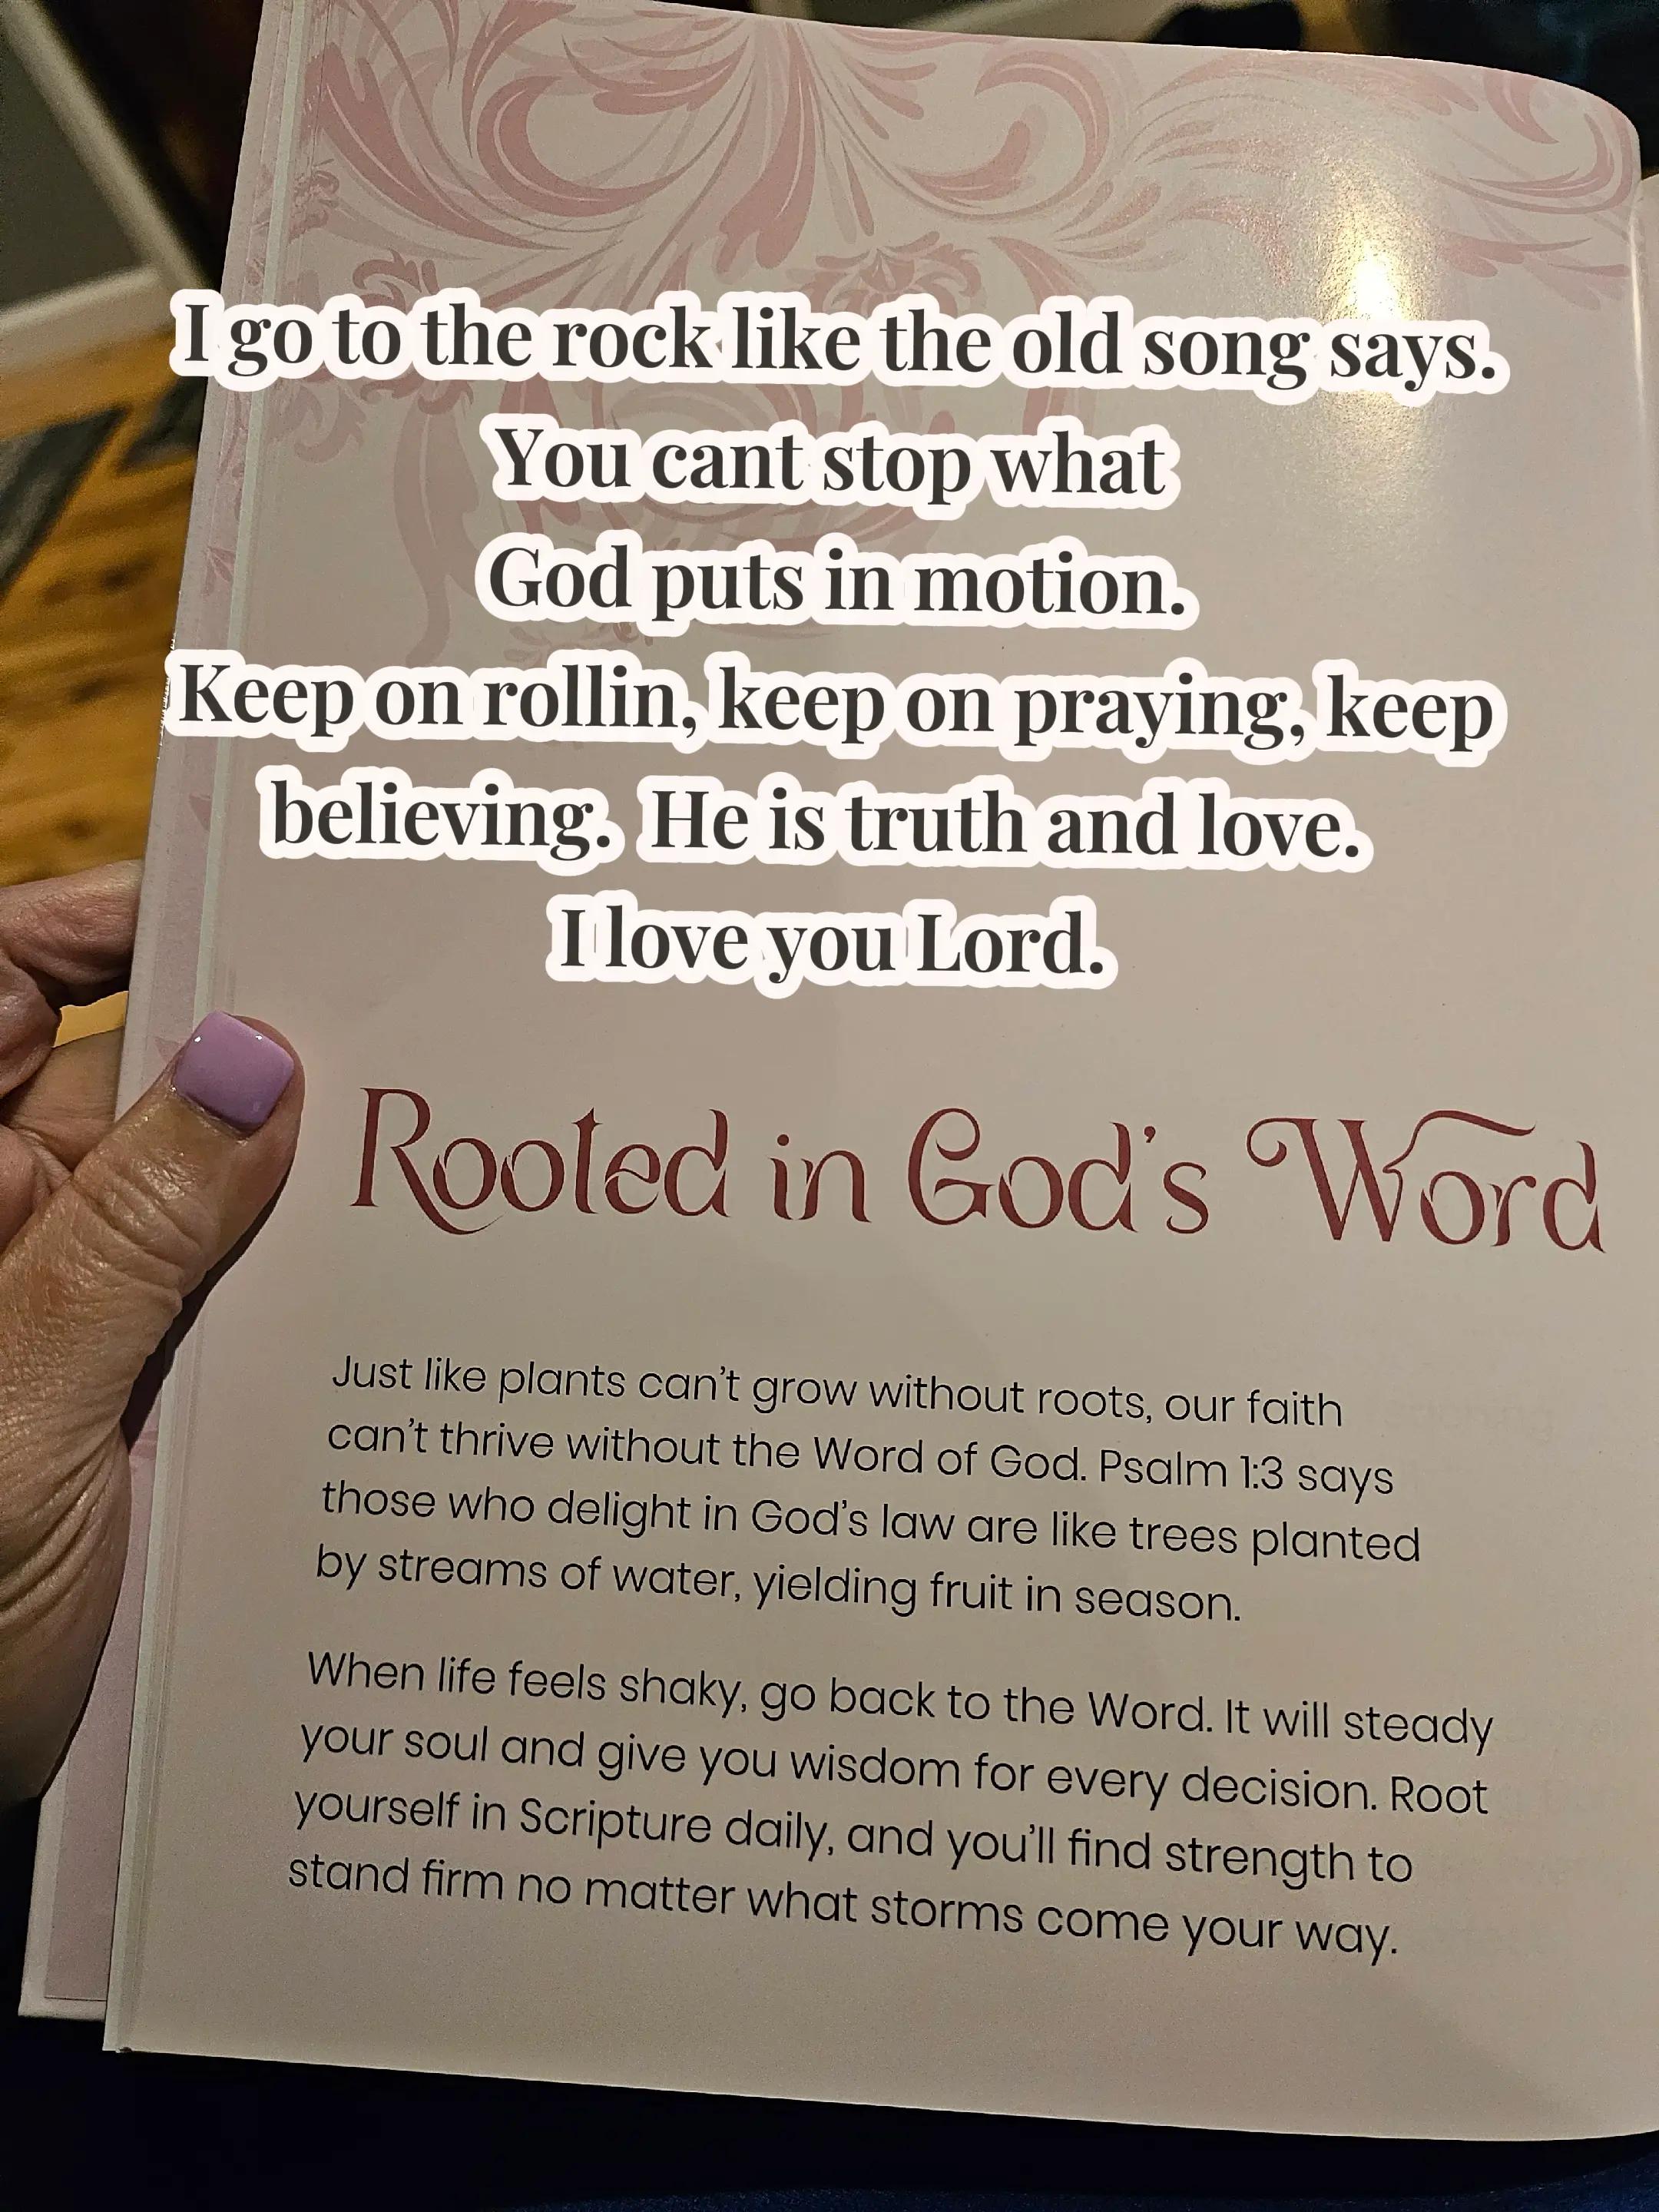 I go to the rock like the old song says.
You cant stop what
God puts in motion.
Keep on rollin, keep on praying, keep
believing. He is truth and love.
I love you Lord.
Rooted in God's Word
Just like plants can't grow without roots, our faith
can't thrive without the Word of God. Psalm 1:3 says
those who delight in God's law are like trees planted
by streams of water, yielding fruit in season.
When life feels shaky, go back to the Word. It will steady
your soul and give you wisdom for every decision. Root
yourself in Scripture daily, and you'll find strength to
stand firm no matter what storms come your way.